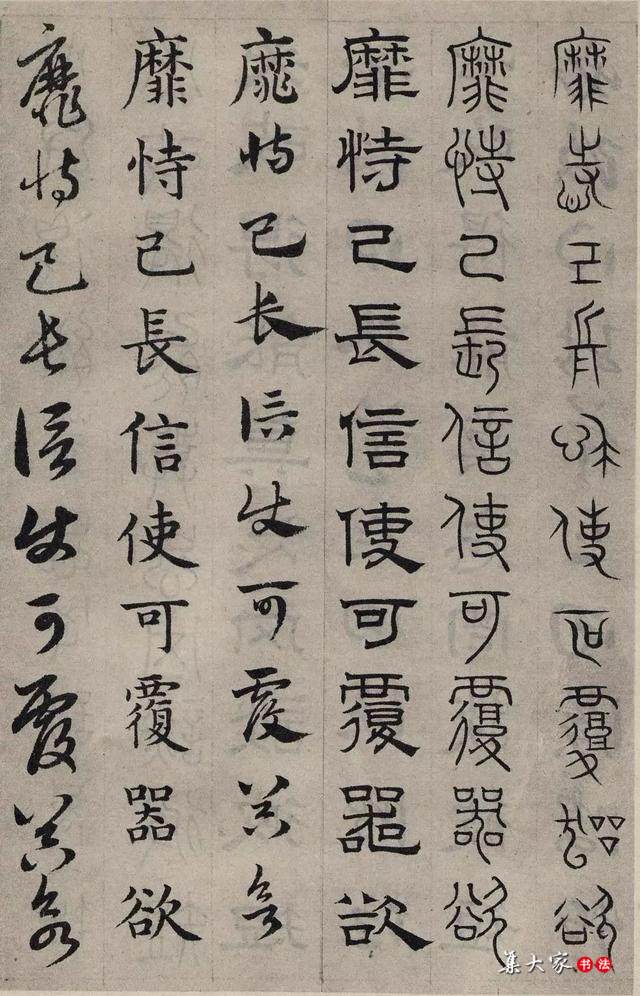 靡恃己長信使可覆器欲
靡恃己長信使可覆器欲
靡恃己長信使可覆器欲
靡恃己长信使可覆器欲
靡恃己長信使可覆器欲
靡恃己长信使可覆器欲
集大家书法